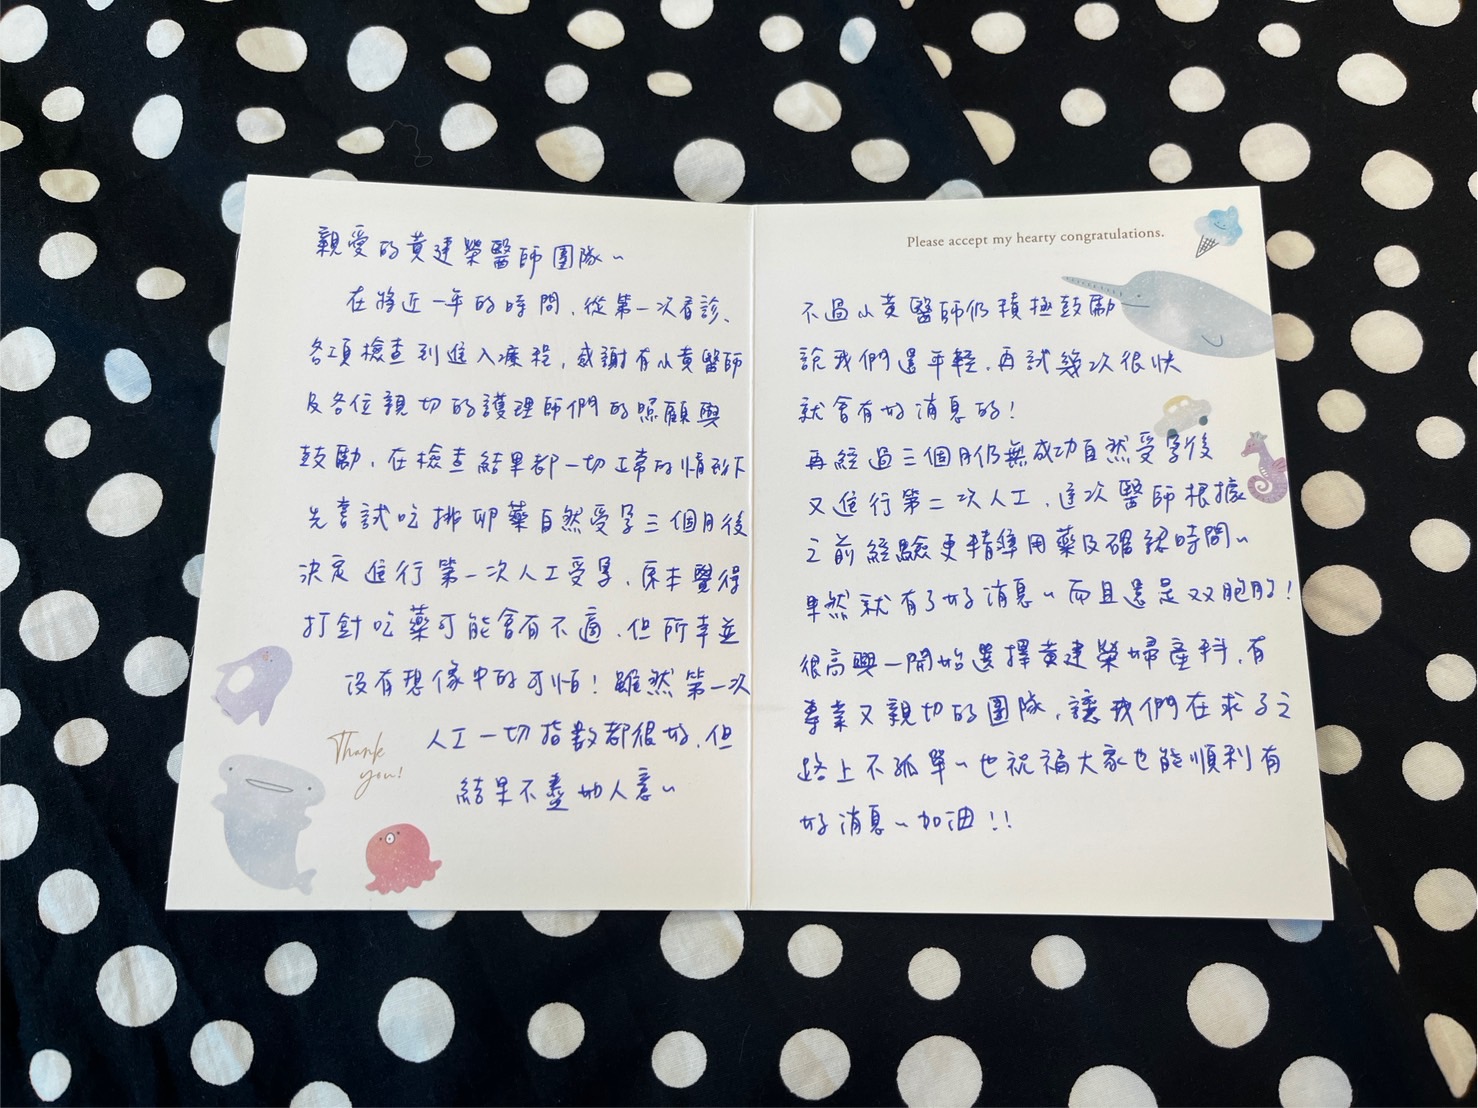 親愛的黃建榮醫師團隊~
在將近一年的時間，從第一次看診、
各項檢查到進入療程，感謝有小黃醫師
及各位親切的護理師們的照顧與
鼓勵，在檢查結果都一切正常的情形下
先嘗試吃排卵藥自然受孕三個月後
決定進行第一次人工受孕，原本覺得
打針吃藥可能會有不適，但所幸並
沒有想像中的可怕！雖然第一次
人工一切指數都很好，但
結果不盡如人意~
Thank
you!
Please accept my hearty congratulations.
不過小黃醫師仍積極鼓勵
說我們還年輕，再試幾次很快
就會有好消息的！
再經過三個月仍無成功自然受孕後
又進行第二次人工，這次醫師根據
之前經驗更精準用藥及確認時間~
果然就有了好消息~而且還是双胞胎！
很高興一開始選擇黃建榮婦產科，有
專業又親切的團隊，讓我們在求子之
路上不孤單~也祝福大家也能順利有
好消息~加油！！